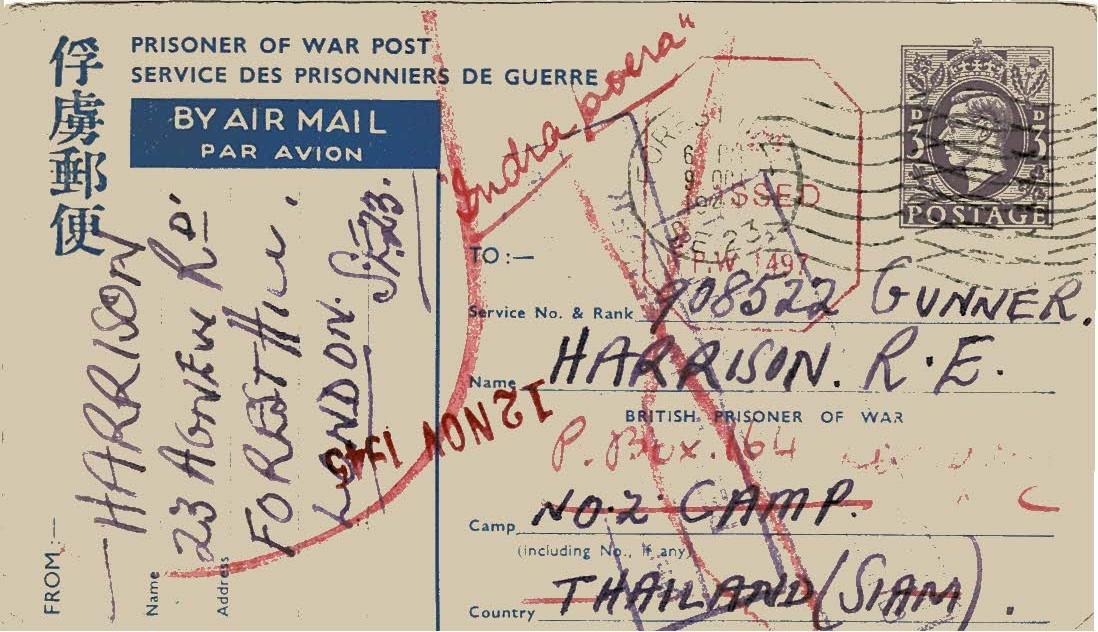 俘虜郵便
PRISONER OF WAR POST
SERVICE DES PRISONNIERS DE GUERRE
BY AIR MAIL
PAR AVION
FROM:—
Name
HARRISON
Address
23 AGNEW RD
FOREST HILL.
LONDON. S.E.23.
12 NOV 1945
"Indra poera"
PASSED
P.W. 1497
S.E. 23
3D 3D
POSTAGE
TO:—
Service No. & Rank 908522 GUNNER.
Name HARRISON. R.E.
BRITISH PRISONER OF WAR
P. Box. 164
Camp NO.2 CAMP.
(including No., if any)
Country THAILAND (SIAM).